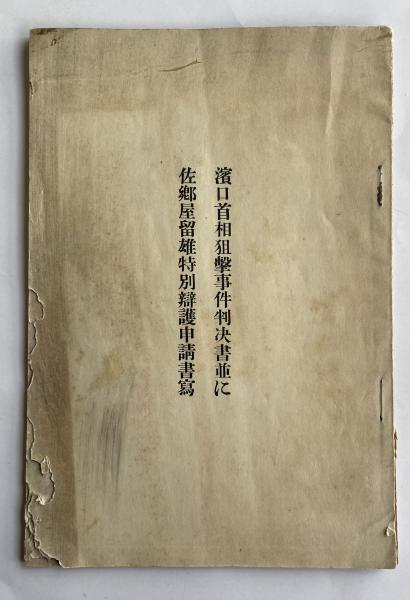 濱口首相狙擊事件判決書並に
佐鄕屋留雄特別辯護申請書寫